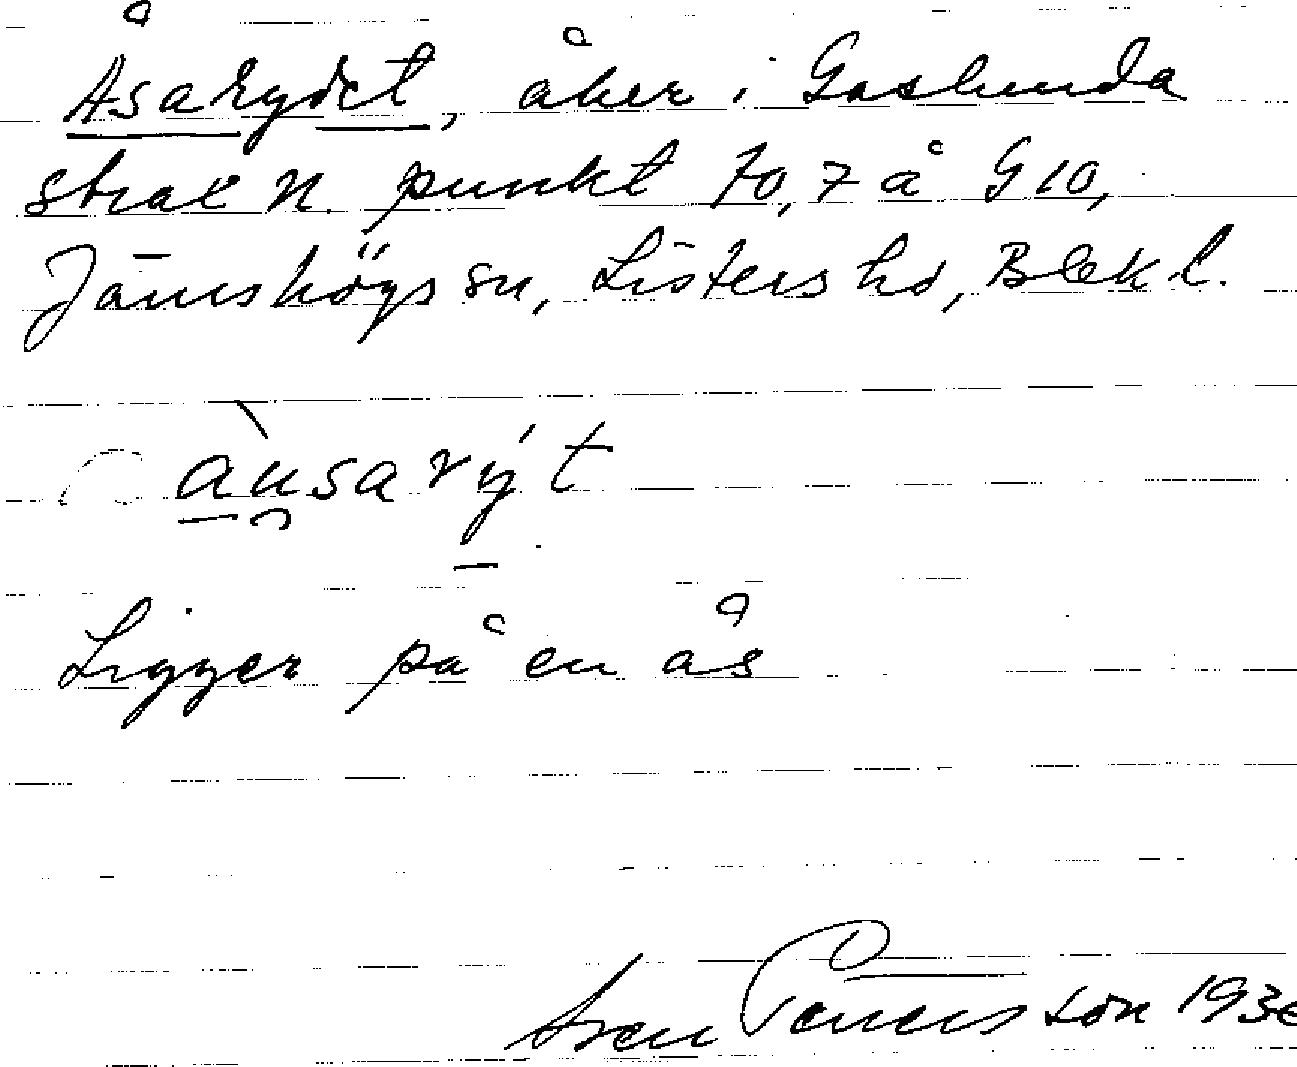 Åsarydet, åker i Gaslunda
strax N. punkt 70,7 å G 10,
Jämshögs sn, Listers hd, Blek l.
au̯sarýt
Ligger på en ås
Sven Benson 193